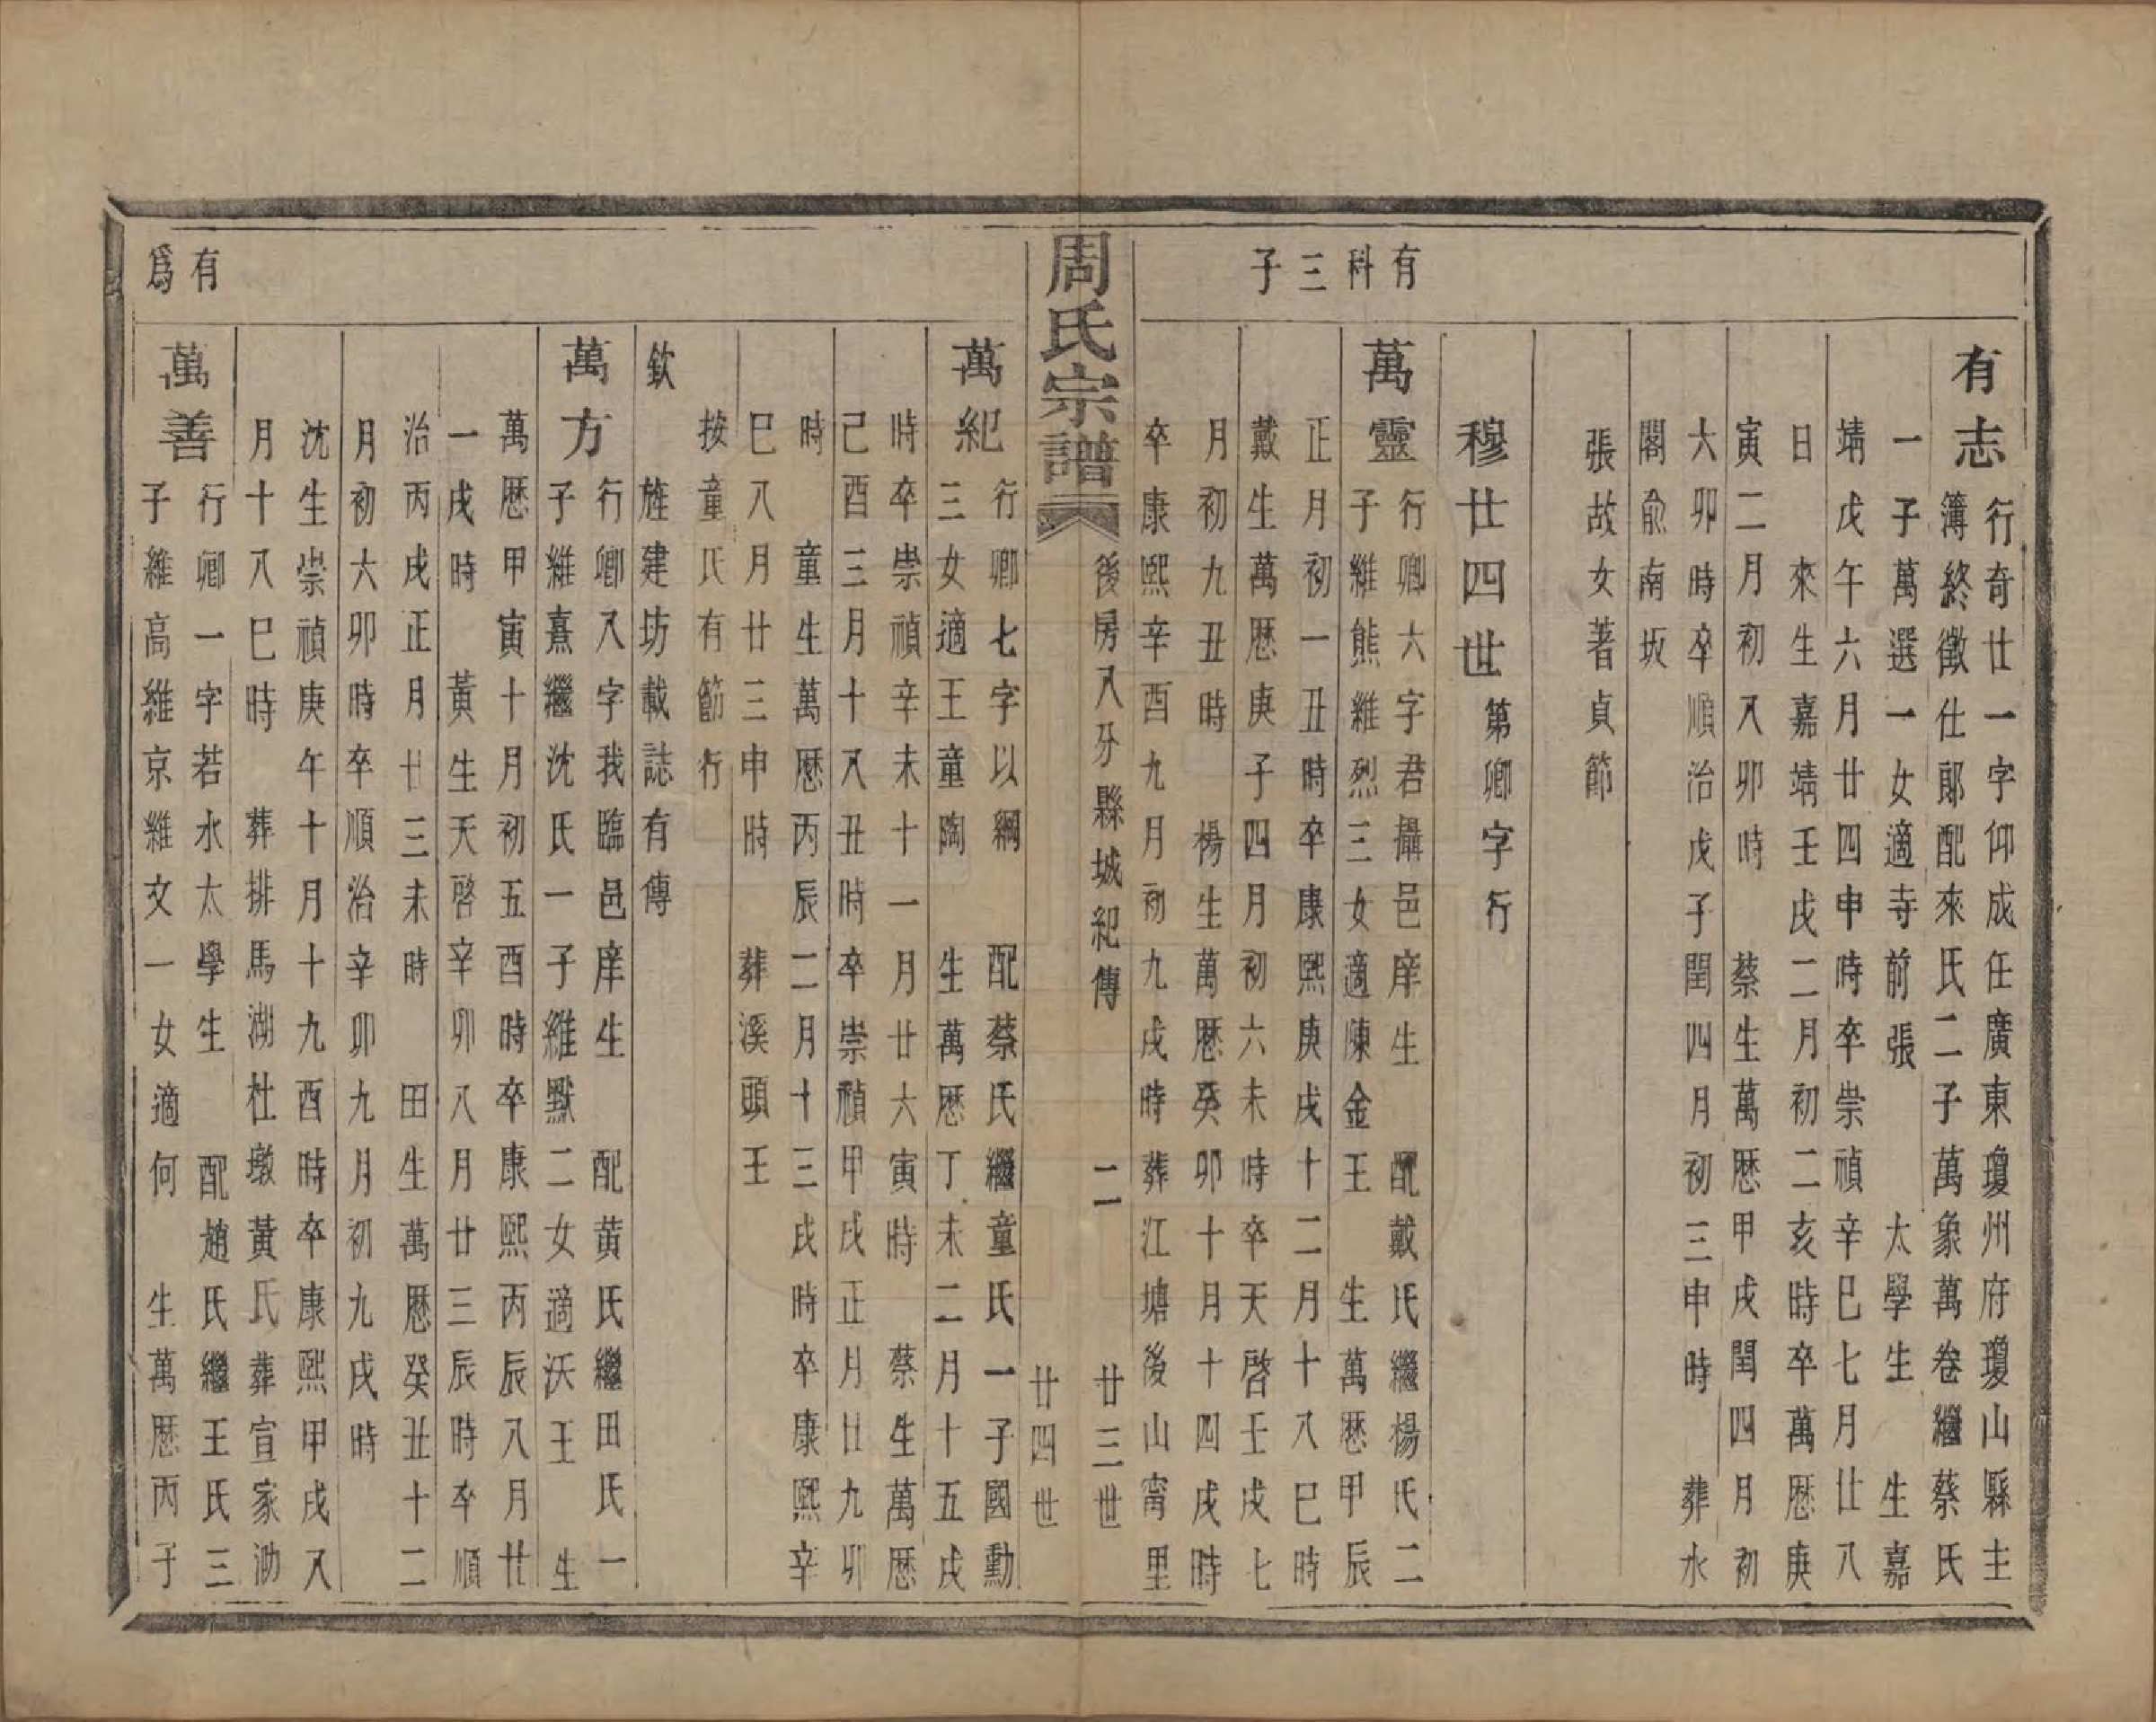 有志
行奇廿一字仰成任廣東瓊州府瓊山縣主
簿終徵仕郎配來氏二子萬象萬卷繼蔡氏
一子萬選一女適寺前張　太學生　生嘉
靖戊午六月廿四申時卒崇禎辛巳七月廿八
日　來生嘉靖壬戌二月初二亥時卒萬歷庚
寅二月初八卯時　蔡生萬歷甲戌閏四月初
六卯時卒順治戊子閏四月初三申時　葬水
閣俞南坂
張故女著貞節
穆廿四世第卿字行
有科三子
萬靈
行卿六字君攝邑庠生　配戴氏繼楊氏二
子維熊維烈三女適陳金王　生萬歷甲辰
正月初一丑時卒康熙庚戌十二月十八巳時
戴生萬歷庚子四月初六未時卒天啓壬戌七
月初九丑時　楊生萬歷癸卯十月十四戌時
卒康熙辛酉九月初九戌時葬江塘後山甯里
周氏宗譜
後房八分縣城紀傳　二　廿三世
廿四世
萬紀
行卿七字以綱　配蔡氏繼童氏一子國勳
三女適王童陶　生萬歷丁未二月十五戌
時卒崇禎辛未十一月廿六寅時　蔡生萬歷
己酉三月十八丑時卒崇禎甲戌正月廿九卯
時　童生萬歷丙辰二月十三戌時卒康熙辛
巳八月廿三申時　葬溪頭王
按童氏有節行
欽旌建坊載誌有傳
萬方
行卿八字我臨邑庠生　配黃氏繼田氏一
子維熹繼沈氏一子維默二女適沃王　生
萬歷甲寅十月初五酉時卒康熙丙辰八月廿
一戌時　黃生天啓辛卯八月廿三辰時卒順
治丙戌正月廿三未時　田生萬歷癸丑十二
月初六卯時卒順治辛卯九月初九戌時
沈生崇禎庚午十月十九酉時卒康熙甲戌八
月十八巳時　葬排馬湖杜墩黃氏葬宣家泐
有爲
萬善
行卿一字若水太學生　配趙氏繼王氏三
子維高維京維文一女適何　生萬歷丙子